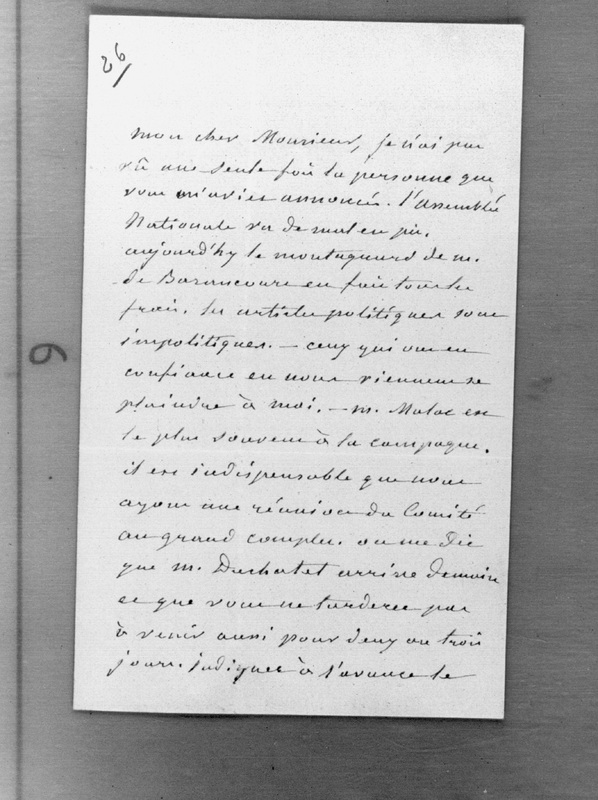 26/
mon cher Monsieur, je n'ai pas
vû une seule fois la personne que
vous m'aviez annoncée. l'assemblée
Nationale va de mal en pis.
aujourd'hy le montagnard de m.
de Bazancourt en fait tous les
frais. les articles politiques sont
impolitiques. — ceux qui ont en
confiance en nous viennent se
plaindre à moi. — m. Malac est
le plus souvent à la campagne.
il est indispensable que nous
ayons une réunion du Comité
au grand complet. on me dit
que m. Duchatel arrive demain
et que vous ne tarderez pas
à venir aussi pour deux ou trois
jours. indiquez à l'avance le
6